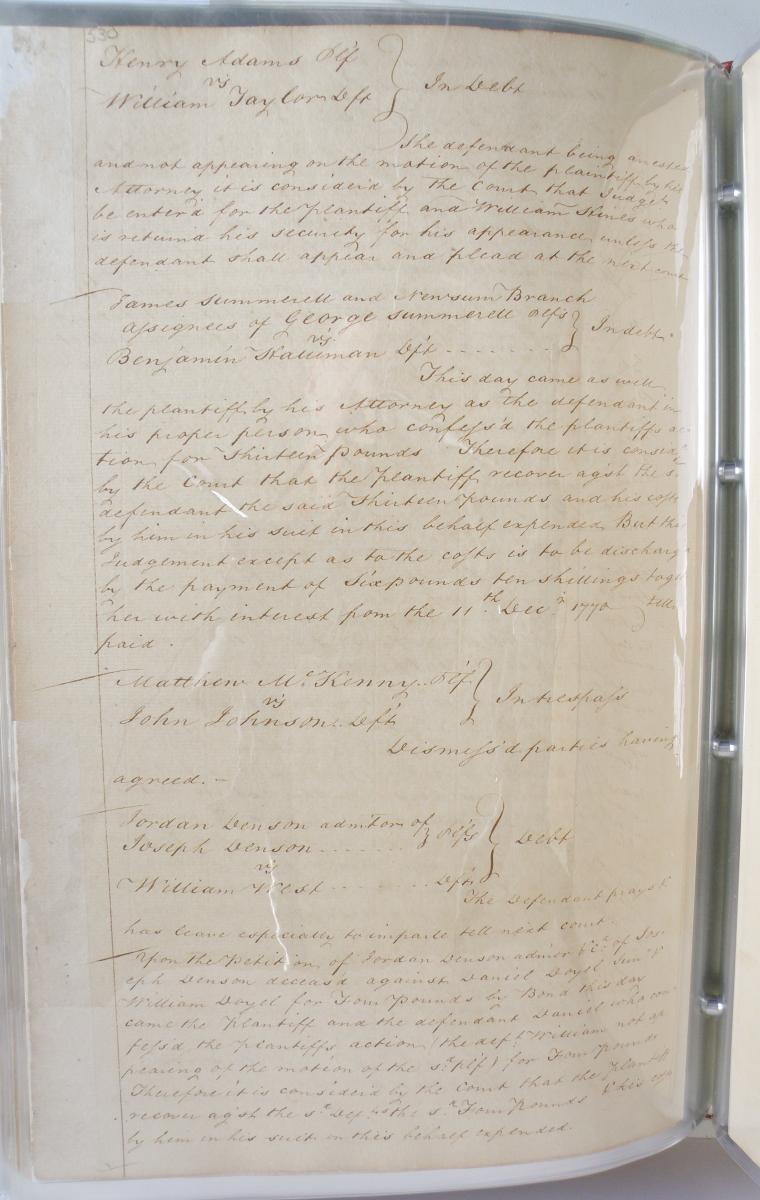 530
Henry Adams Plf
vs
William Taylor Dft } In Debt
The defendant being arrested
and not appearing on the motion of the plaintiff by his
Attorney it is consider'd by the Court that Judgt
be enter'd for the Plantiff and William Hines who
is return'd his security for his appearance unless the
defendant shall appear and plead at the next court
James Summerell and Newsum Branch
assignees of George Summerell Plfs } In debt
vs
Benjamin Dft
This day came as well
the plantiff by his Attorney as the defendant in
his proper person who confess'd the plantiffs ac
tion for Thirteen pounds Therefore it is consider'd
by the Court that the Plantiff recover agst the sd
defendant the said Thirteen pounds and his costs
by him in his suit in this behalf expended But this
Judgement except as to the costs is to be discharg'd
by the payment of Six pounds ten shillings toge
her with interest from the 11th Decr 1770 tell
paid.
Matthew McKenny Plf
vs } In trespass
John Johnson Dft
Dismess'd parties having
agreed.-
Jordan Denson admitor of
Joseph Denson } Plfs } Debt
vs
William West Dft
The Defendant prays &
has leave especially to imparle tell next court.
Upon the Petition of Jordan Denson admor &c. of Jos-
eph Denson deceas'd against Daniel Doyel Junr &
William Doyel for Four Pounds by Bond this day
came the Plantiff and the defendant Daniel who con
fess'd the plantiffs action (the deft William not ap
pearing of the motion of the sd plf) for Four Pounds
Therefore it is consider'd by the Court that the Plantiff
recover agst the sd Defts the sd Four Pounds & his costs
by him in his suit in this behalf expended.